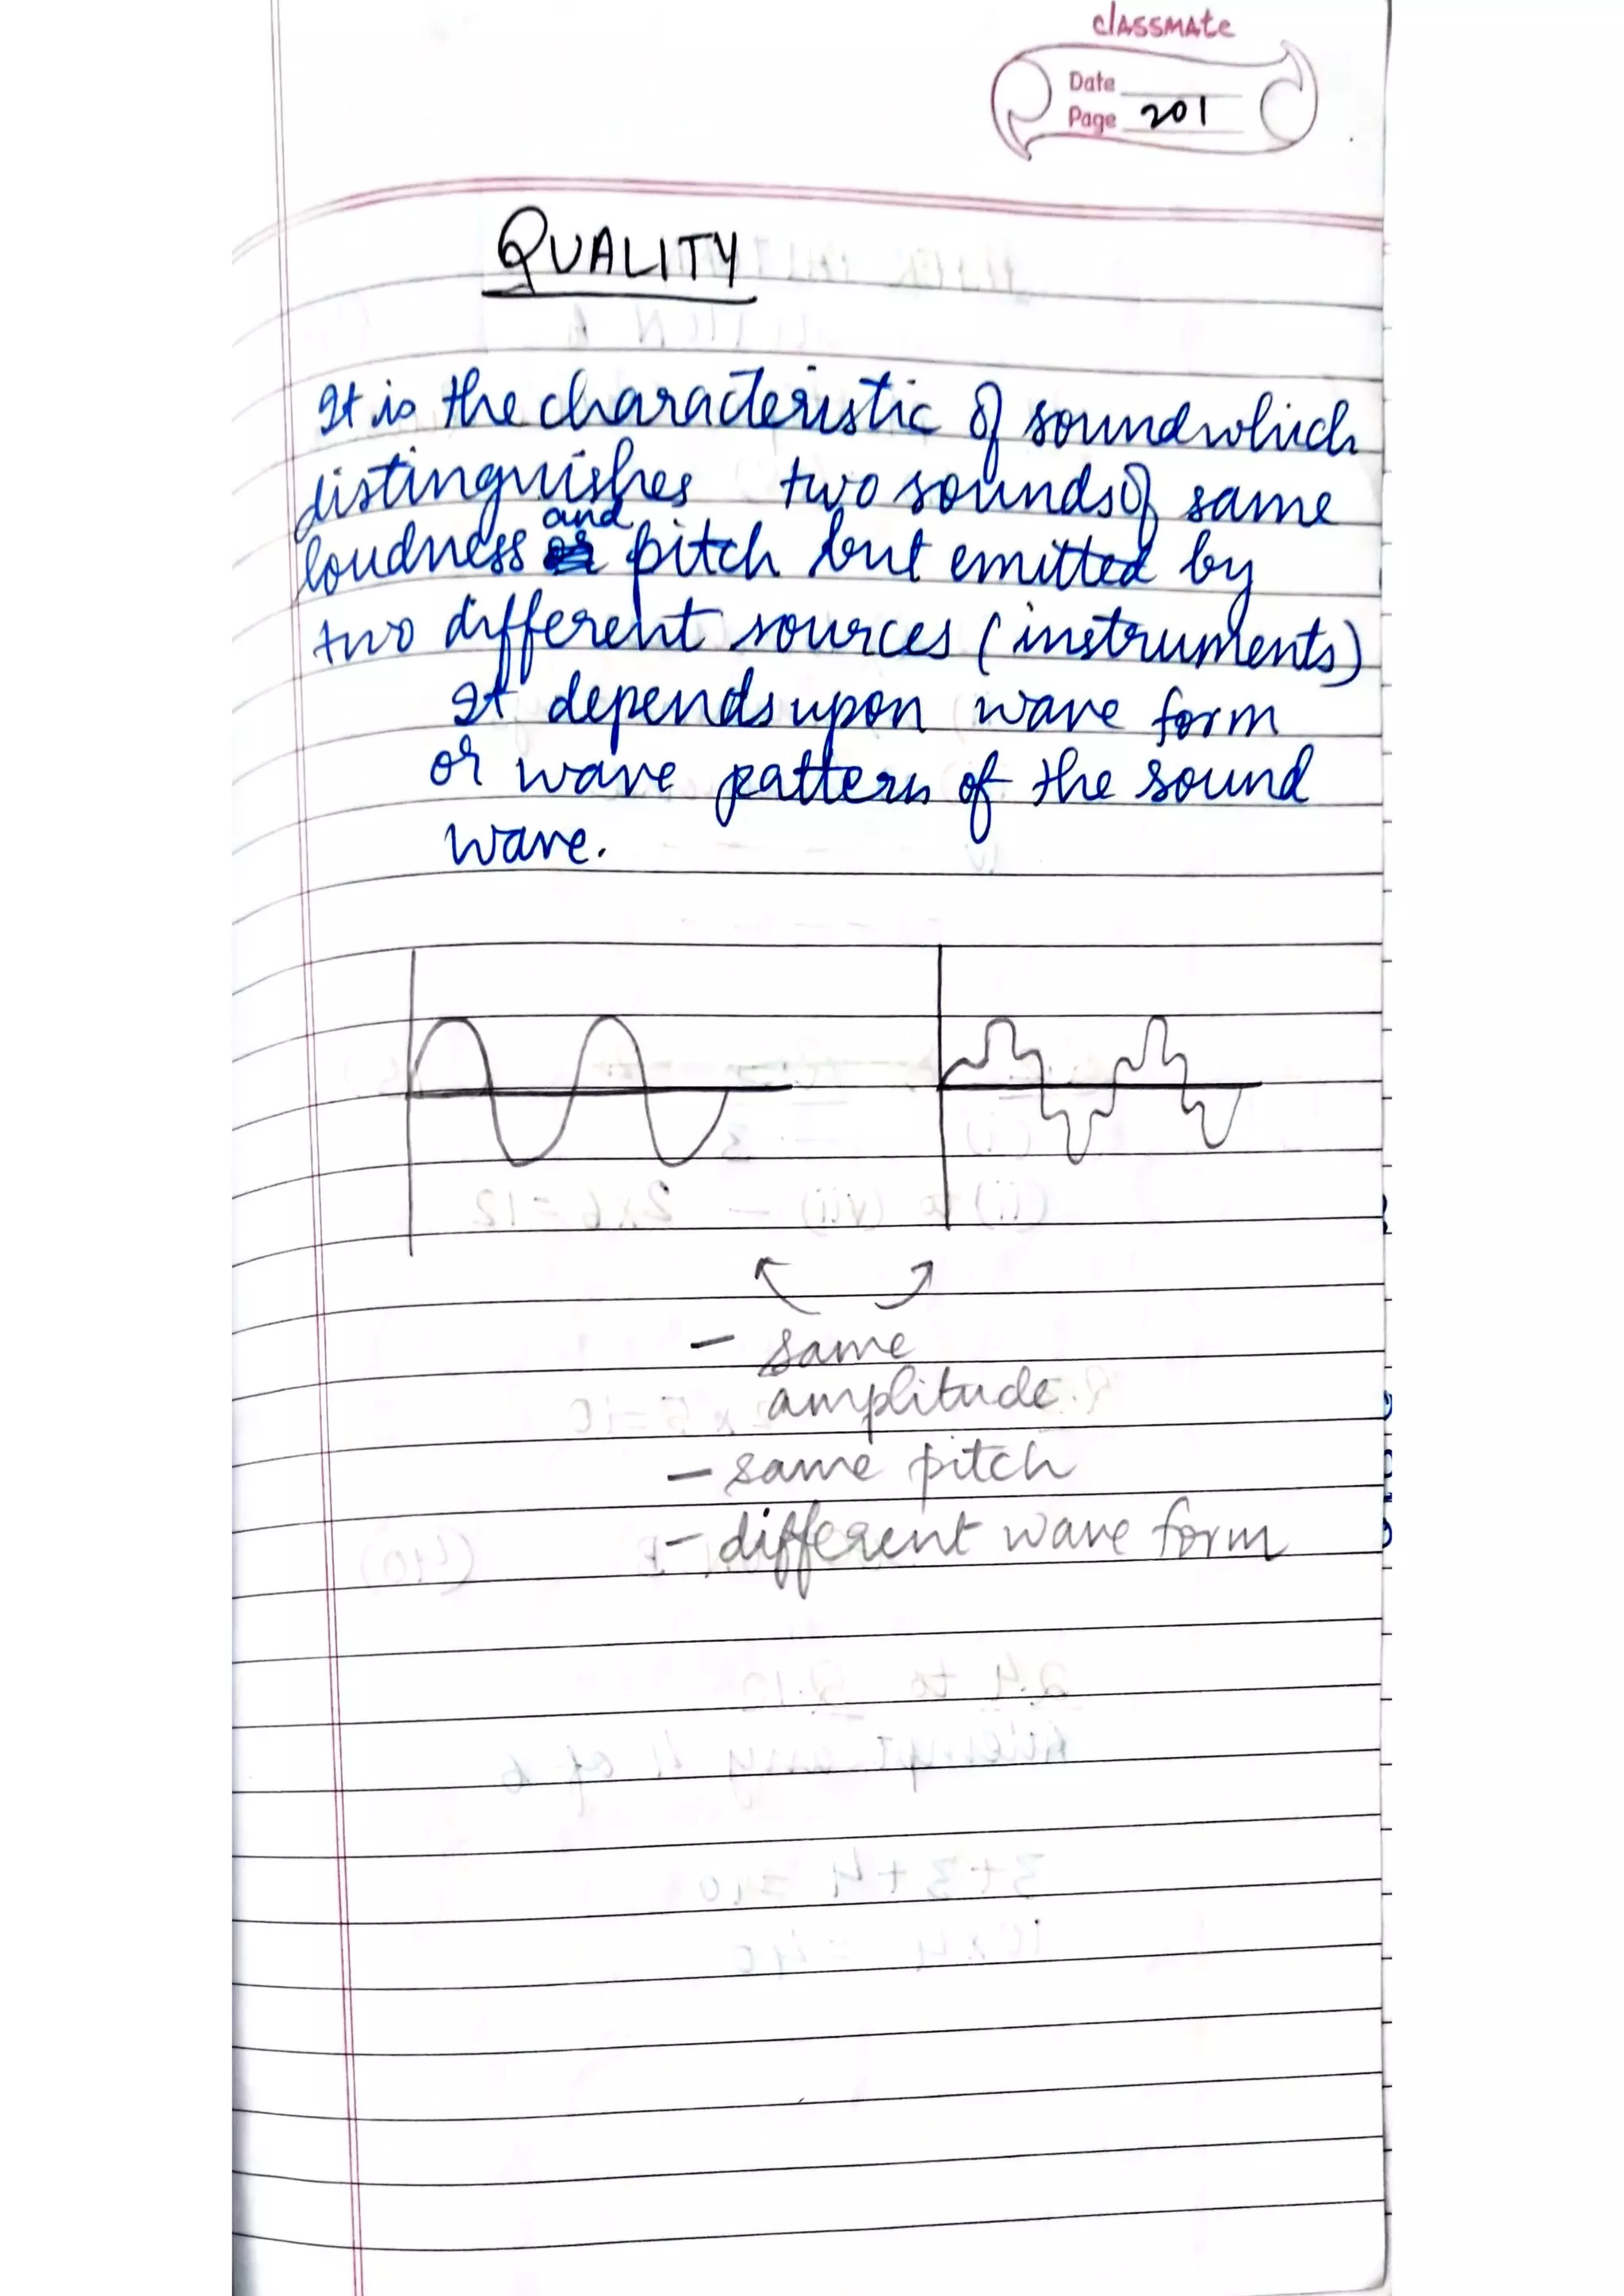 classmate
Date
Page 201
QUALITY
It is the characteristic of sound which
distinguishes two sounds of same
loudness and pitch but emitted by
two different sources (instruments)
It depends upon wave form
or wave pattern of the sound
wave.
- same
amplitude
- same pitch
- different wave form